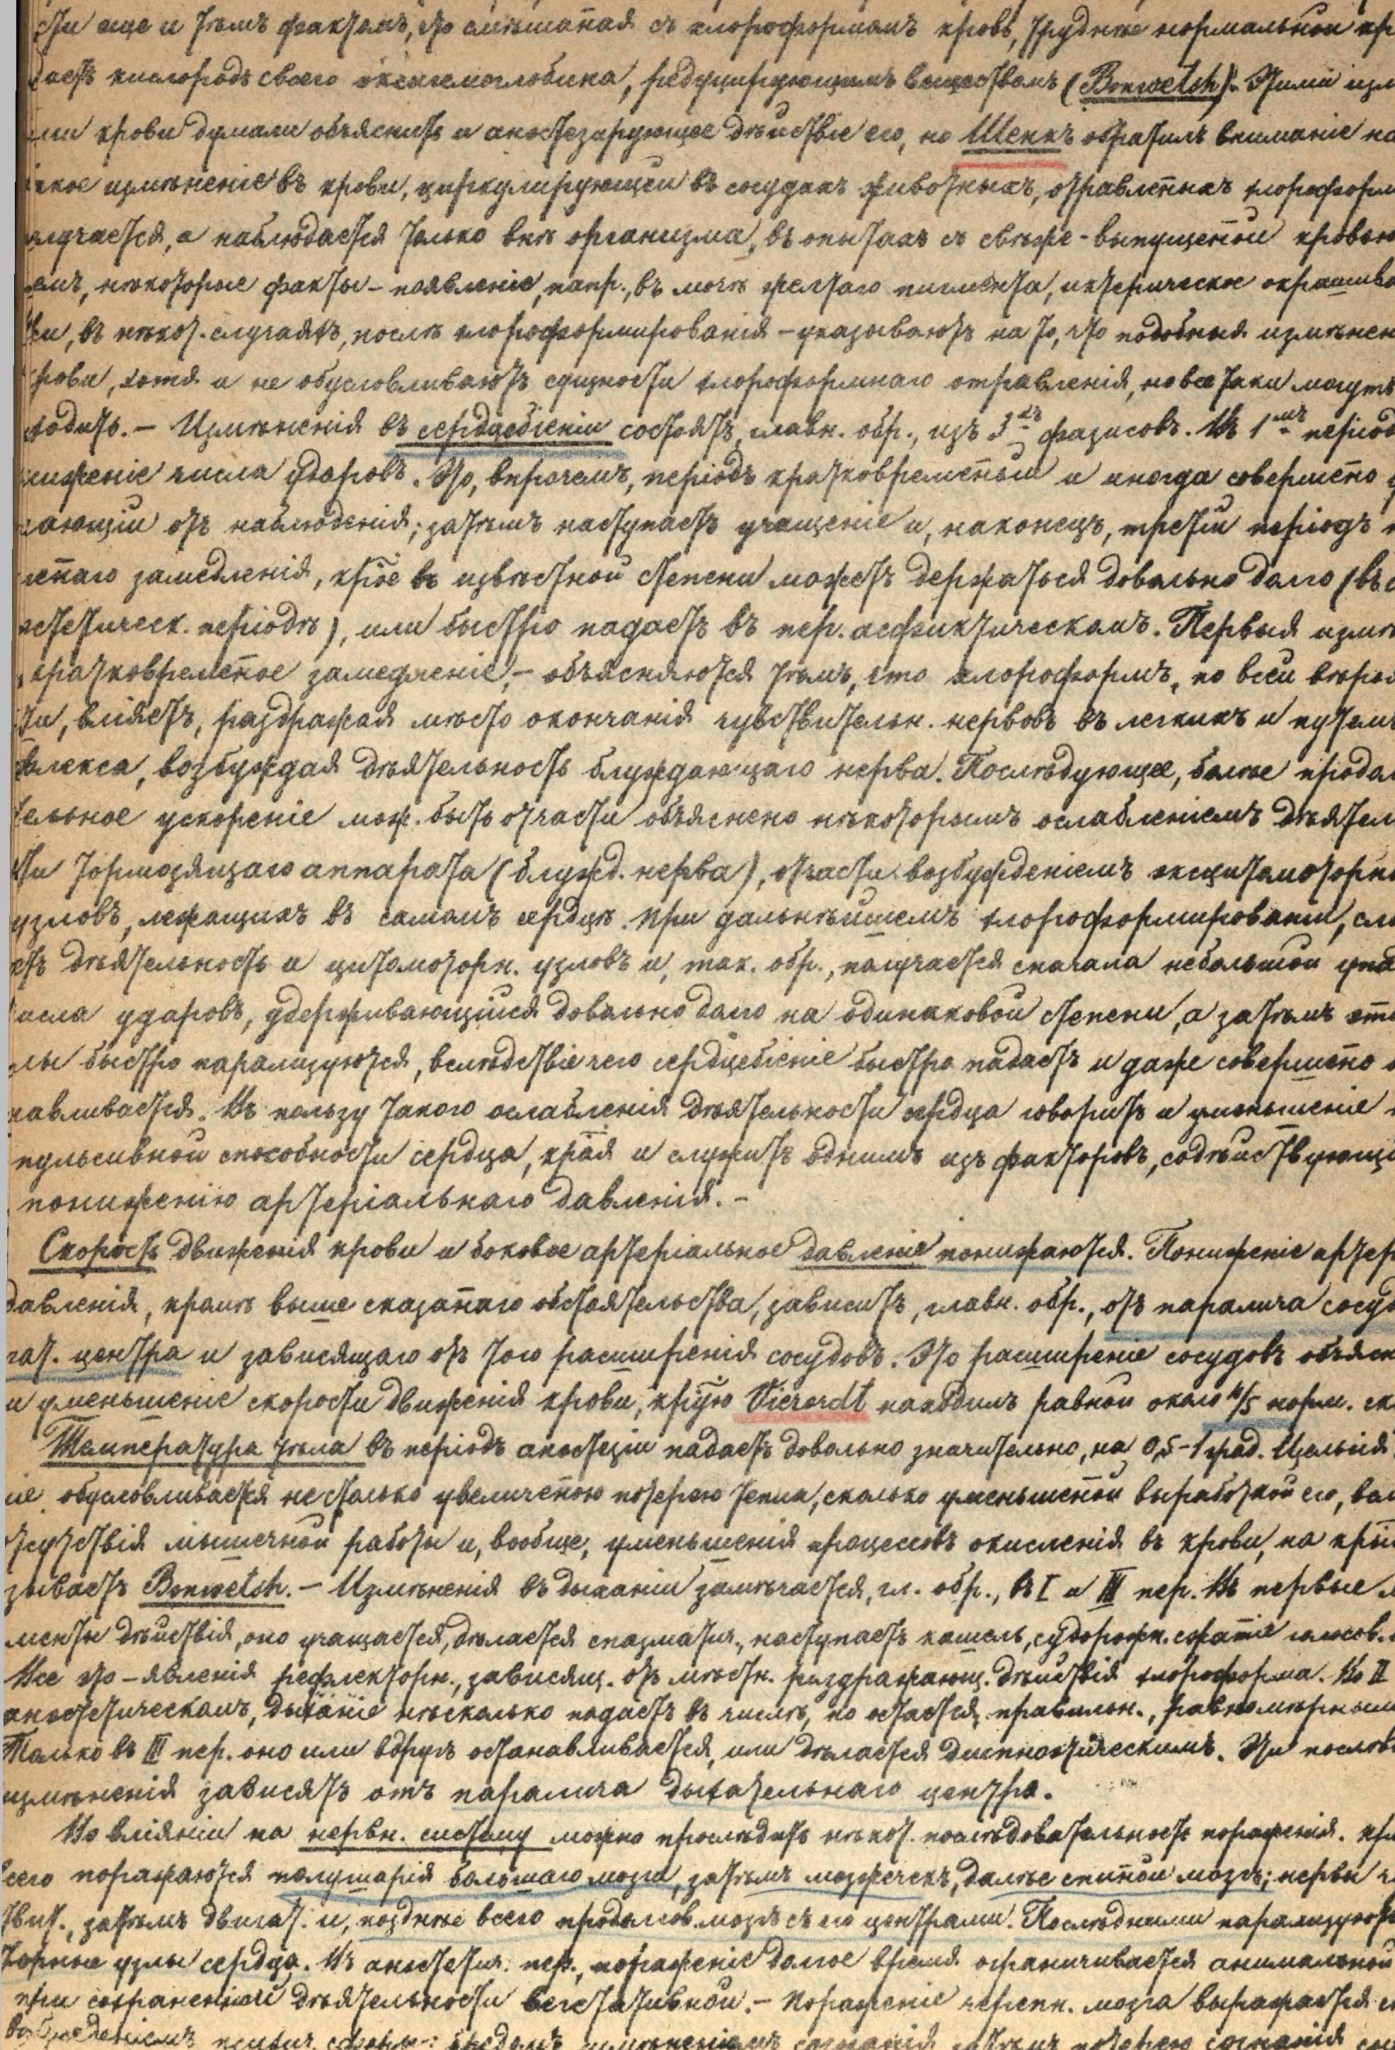 сти еще и тѣмъ фактомъ, что смѣшаная съ хлороформомъ кровь, труднѣе нормальной кр
даетъ кислородъ своего оксигемоглобина, редуцирующимъ веществамъ (Bonwetsch). Этими изм
ми крови думали объяснить и анестезирующее дѣйствіе его, но Шенкъ обратилъ вниманіе на
изменѣніе въ крови, циркулирующей въ сосудахъ животныхъ, отравленыхъ хлороформ
лучается, а наблюдается только внѣ организма, въ опытахъ съ свѣже-выпущеной кровью
емъ, нѣкоторые факты – появленіе, напр., въ мочѣ желтаго пигмента, иктерическое окрашива
жи, въ нѣкот. случаяхъ, послѣ хлороформированія – указываютъ на то, что подобныя измѣнен
рови, хотя и не обусловливаютъ сущности хлороформнаго отравленія, но все таки могутъ
ходить. – Измѣненія въ сердцебіеніи состоятъ, главн. обр., изъ 3-хъ фазисовъ. Въ 1-мъ період
ниженіе числа ударовъ. Это, впрочемъ, періодъ кратковременый и иногда совершено у
ающій отъ наблюденія; затѣмъ наступаетъ учащеніе и, наконецъ, третій періодъ п
пенаго замедленія, крое въ извѣстной степени можетъ держаться довольно долго (въ а
естетическ. періодѣ), или быстро падаетъ въ пер. асфиктическомъ. Первыя измѣ
кратковременое замедленіе, – объясняются тѣмъ, что хлороформъ, по всей вѣроя
сти, вліяетъ, раздражая мѣсто окончанія чувствительн. нервовъ въ легкихъ и путемъ
флекса, возбуждая дѣятельность блуждающаго нерва. Послѣдующее, болѣе продол
тельное ускореніе мож. быть отчасти объяснено нѣкоторымъ ослабленіемъ дѣятел
сти тормозящаго аппарата (блужд. нерва), отчасти возбужденіемъ эксцитомоторны
узловъ, лежащихъ въ самомъ сердцѣ. При дальнѣйшемъ хлороформированіи, сла
етъ дѣятельность и цитомоторн. узловъ и, так. обр., получается сначала небольшой упа
исла ударовъ, удерживающійся довольно долго на одинаковой степени, а затѣмъ эти
лы быстро парализуются, вслѣдствіе чего сердцебіеніе быстро падаетъ и даже совершено о
навливается. Въ пользу такого ослабленія дѣятельности сердца говоритъ и уменьшеніе
пульсивной способности сердца, края и служитъ однимъ изъ факторовъ, содѣйствующи
пониженію артеріальнаго давленія. –
Скорость движенія крови и боковое артеріальное давленіе понижаются. Пониженіе артер
давленія, кромѣ выше сказанаго обстоятельства, зависитъ, главн. обр., отъ паралича сосуд
гат. центра и зависящаго отъ того расширенія сосудовъ. Это расширеніе сосудовъ объясн
и уменьшеніе скорости движенія крови, крую Vierordt находилъ равной около 4/5 норм. ск
Температура тѣла въ періодъ анестезіи падаетъ довольно значительно, на 0,5–1 град.
ие обусловливается не столько увеличеною потерею тепла, сколько уменьшеной выработкой его,
отсутствія мышечной работы и, вообще, уменьшенія процессовъ окисленія въ крови, на
зываетъ Bonwetsch. – Измѣненія въ дыханіи замѣчается, гл. обр., въ I и III пер. Въ первые м
менты дѣйствія, оно учащается, дѣлается спазматич., наступаетъ кашель, судорожн. сжатіе голосов.
Все это – явленія рефлекторн., зависящ. отъ мѣстн. раздражающ. дѣйствія хлороформа. Во II
анестетическомъ, дыханіе нѣсколько падаетъ въ числѣ, но остается правильн., равномѣрнымъ
Только въ III пер. оно или вдругъ останавливается, или дѣлается диспноэтическимъ. Эти послѣд
измѣненія зависятъ отъ паралича дыхательнаго центра.
Во вліяніи на нервн. систему можно прослѣдить нѣкот. послѣдовательность пораженія.
всего поражаются полушарія большаго мозга, затѣмъ мозжечекъ, далѣе спиной мозгъ; нервы ч
твит., затѣмъ двигат. и, позднѣе всего продолгов. мозгъ съ его центрами. Послѣдними парализуются
торные узлы сердца. Въ анестетич. пер., пораженіе долгое время ограничивается анимальной
при сохраненной дѣятельности вегетативной. – Пораженіе черепн. мозга выражается
возбужденіемъ сознанія потерею сознанія